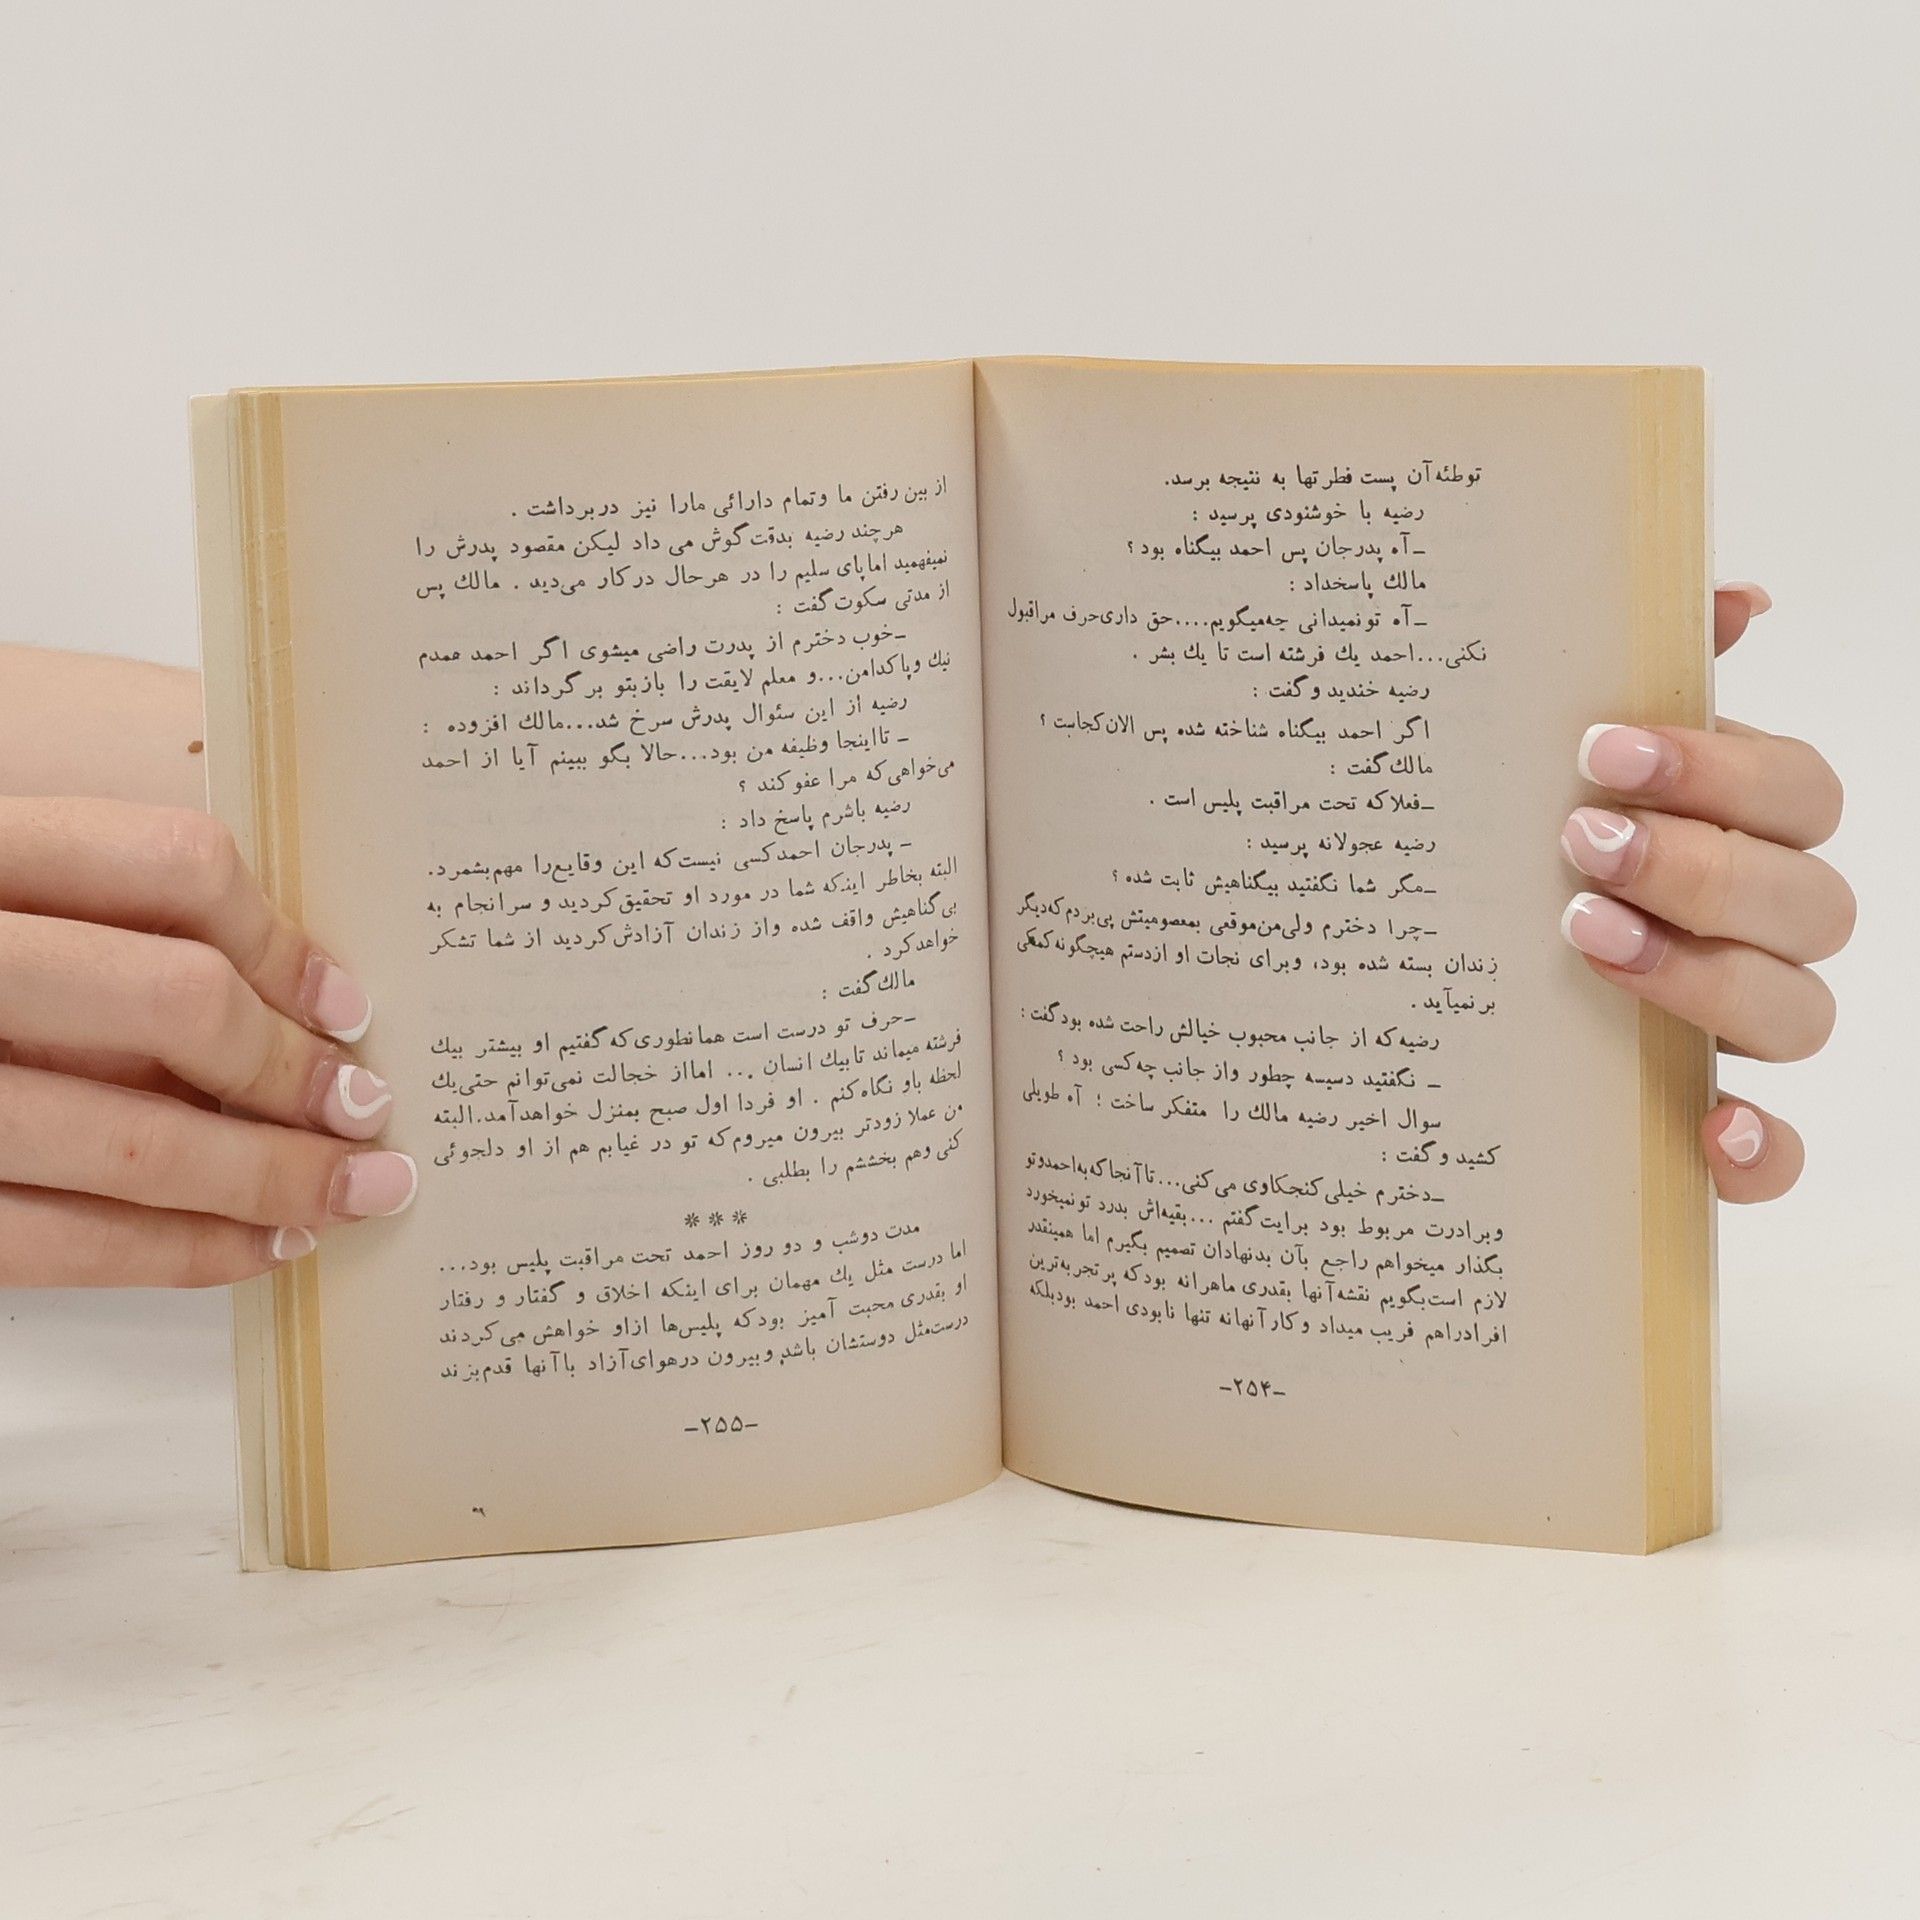 توطئه آن پست فطرتها به نتیجه برسد.
رضیه با خوشنودی پرسید :
ـ آه پدرجان پس احمد بیگناه بود ؟
مالك پاسخداد :
ـ آه تو نمیدانی چه‌میگویم....حق داری‌حرف مراقبول
نکنی...احمد یك فرشته است تا یك بشر .
رضیه خندید و گفت :
اگر احمد بیگناه شناخته شده پس الان‌کجاست ؟
مالك گفت :
ـ فعلاکه تحت مراقبت پلیس است .
رضیه عجولانه پرسید :
ـ مگر شما نگفتید بیگناهیش ثابت شده ؟
ـ چرا دخترم ولی‌من‌موقعی بمعصومیتش پی‌بردم‌که‌دیگر
زندان بسته شده بود، وبرای نجات او ازدستم هیچگونه‌کمکی
بر نمیآید .
رضیه‌که از جانب محبوب خیالش راحت شده بود گفت :
ـ نگفتید دسیسه چطور واز جانب چه‌کسی بود ؟
سوال اخیر رضیه مالك را متفکر ساخت ؛ آه طویلی
کشید و گفت :
ـ دخترم خیلی‌کنجکاوی می‌کنی...تا آنجا که‌به‌احمدوتو
وبرادرت مربوط بود برایت‌گفتم ...بقیه‌اش بدرد تونمیخورد
بگذار میخواهم راجع بآن بدنهادان تصمیم بگیرم اما همینقدر
لازم است‌بگویم نقشه آنها بقدری ماهرانه بودکه پرتجربه‌ترین
افرادراهم فریب میداد وکار آنهانه تنها نابودی احمد بودبلکه
ـ۲۵۴ـ
از بین رفتن ما وتمام دارائی مارا نیز دربرداشت .
هرچند رضیه بدقت‌گوش می داد لیکن مقصود پدرش را
نمیفهمید اماپای سلیم را در هرحال درکار می‌دید . مالك پس
از مدتی سکوت‌گفت :
ـ خوب دخترم از پدرت راضی میشوی اگر احمد همدم
نیك وپاکدامن...و معلم لایقت را بازبتو برگرداند :
رضیه از این سئوال پدرش سرخ شد...مالك افزوده :
ـ تااینجا وظیفه من بود...حالا بگو ببینم آیا از احمد
می‌خواهی‌که مرا عفوکند ؟
رضیه باشرم پاسخ داد :
ـ پدرجان احمدکسی نیست‌که این وقایع‌را مهم‌بشمرد.
البته بخاطر اینکه شما در مورد او تحقیق‌کردید و سرانجام به
بی‌گناهیش واقف شده واز زندان آزادش‌کردید از شما تشکر
خواهدکرد .
مالك‌گفت :
ـ حرف تو درست است همانطوری‌که‌گفتیم او بیشتر بیك
فرشته میماند تابیك انسان ... امااز خجالت نمی‌توانم حتی‌یك
لحظه باو نگاه‌کنم . او فردا اول صبح بمنزل خواهدآمد.البته
من عملا زودتر بیرون میروم‌که تو در غیابم هم از او دلجوئی
کنی وهم بخششم را بطلبی .
* * *
مدت دوشب و دو روز احمد تحت مراقبت پلیس بود...
اما درست مثل یك مهمان برای اینکه اخلاق و گفتار و رفتار
او بقدری محبت آمیز بودکه پلیس‌ها ازاو خواهش می‌کردند
درست‌مثل دوستشان باشد وبیرون درهوای‌آزاد باآنها قدم‌بزند
ـ۲۵۵ـ